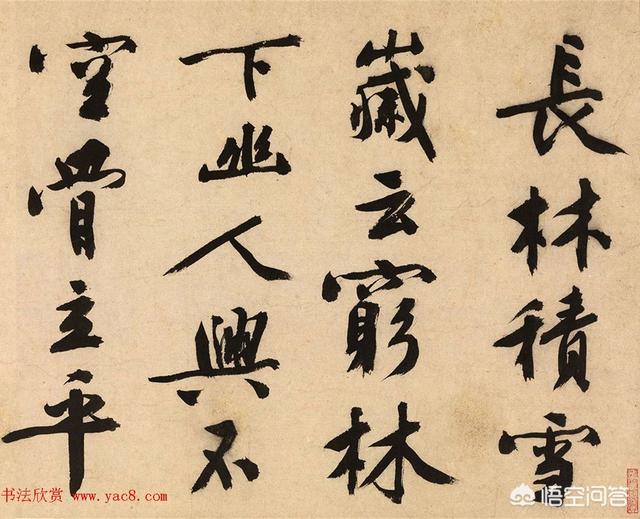 長林積雪
嵗云窮林
下幽人興不
空骨立平
书法欣赏 www.yac8.com
悟空问答